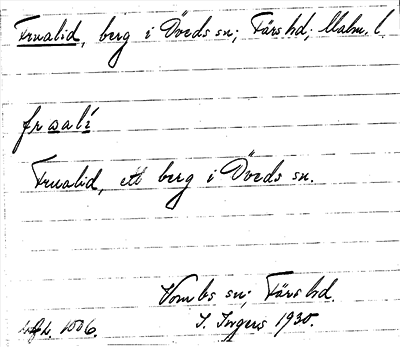 Frualid, berg i Öveds sn; Färs hd; Malm. l.
Frualid, ett berg i Öveds sn.
Vombs sn; Färs hd.
I. Ingers 1930.